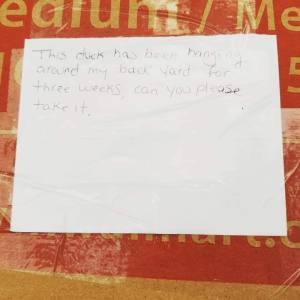 edium / Me
This duck has been hanging
around my back yard for
three weeks, can you please
take it.